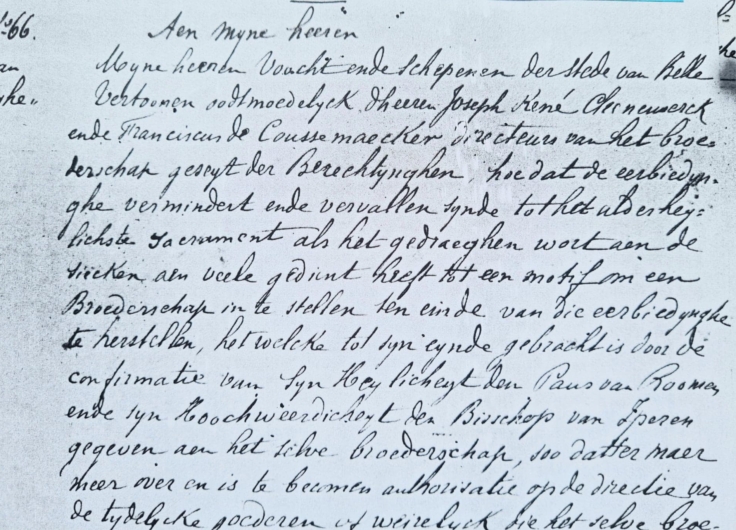 Nº66.
Aen myne heeren
Myne heeren Voucht ende schepenen der stede van Belle
Vertoonen oodtmoedelyck d'heeren Joseph René
ende Franciscus de Coussemaecker directeurs van het broe-
derschap geseyt der Berechtynghen hoe dat de eerbiedyn-
ghe vermindert ende vervallen synde tot het alderhey-
lichste Sacrament als het gedraeghen wort aen de
siecken aen veele gedient heeft tot een motif om een
Broederschap in te stellen ten einde van die eerbiedynghe
te herstellen, het welcke tot syn eynde gebracht is door de
confirmatie van Syn Heylicheyt den Paus van Roomen
ende syn Hoochweerdicheyt den Bisschop van Iperen
gegeven aen het selve broederschap, soo datter maer
meer over en is te becomen authorisatie op de directie van
de tydelycke goederen of weirelyck die het selve broe-